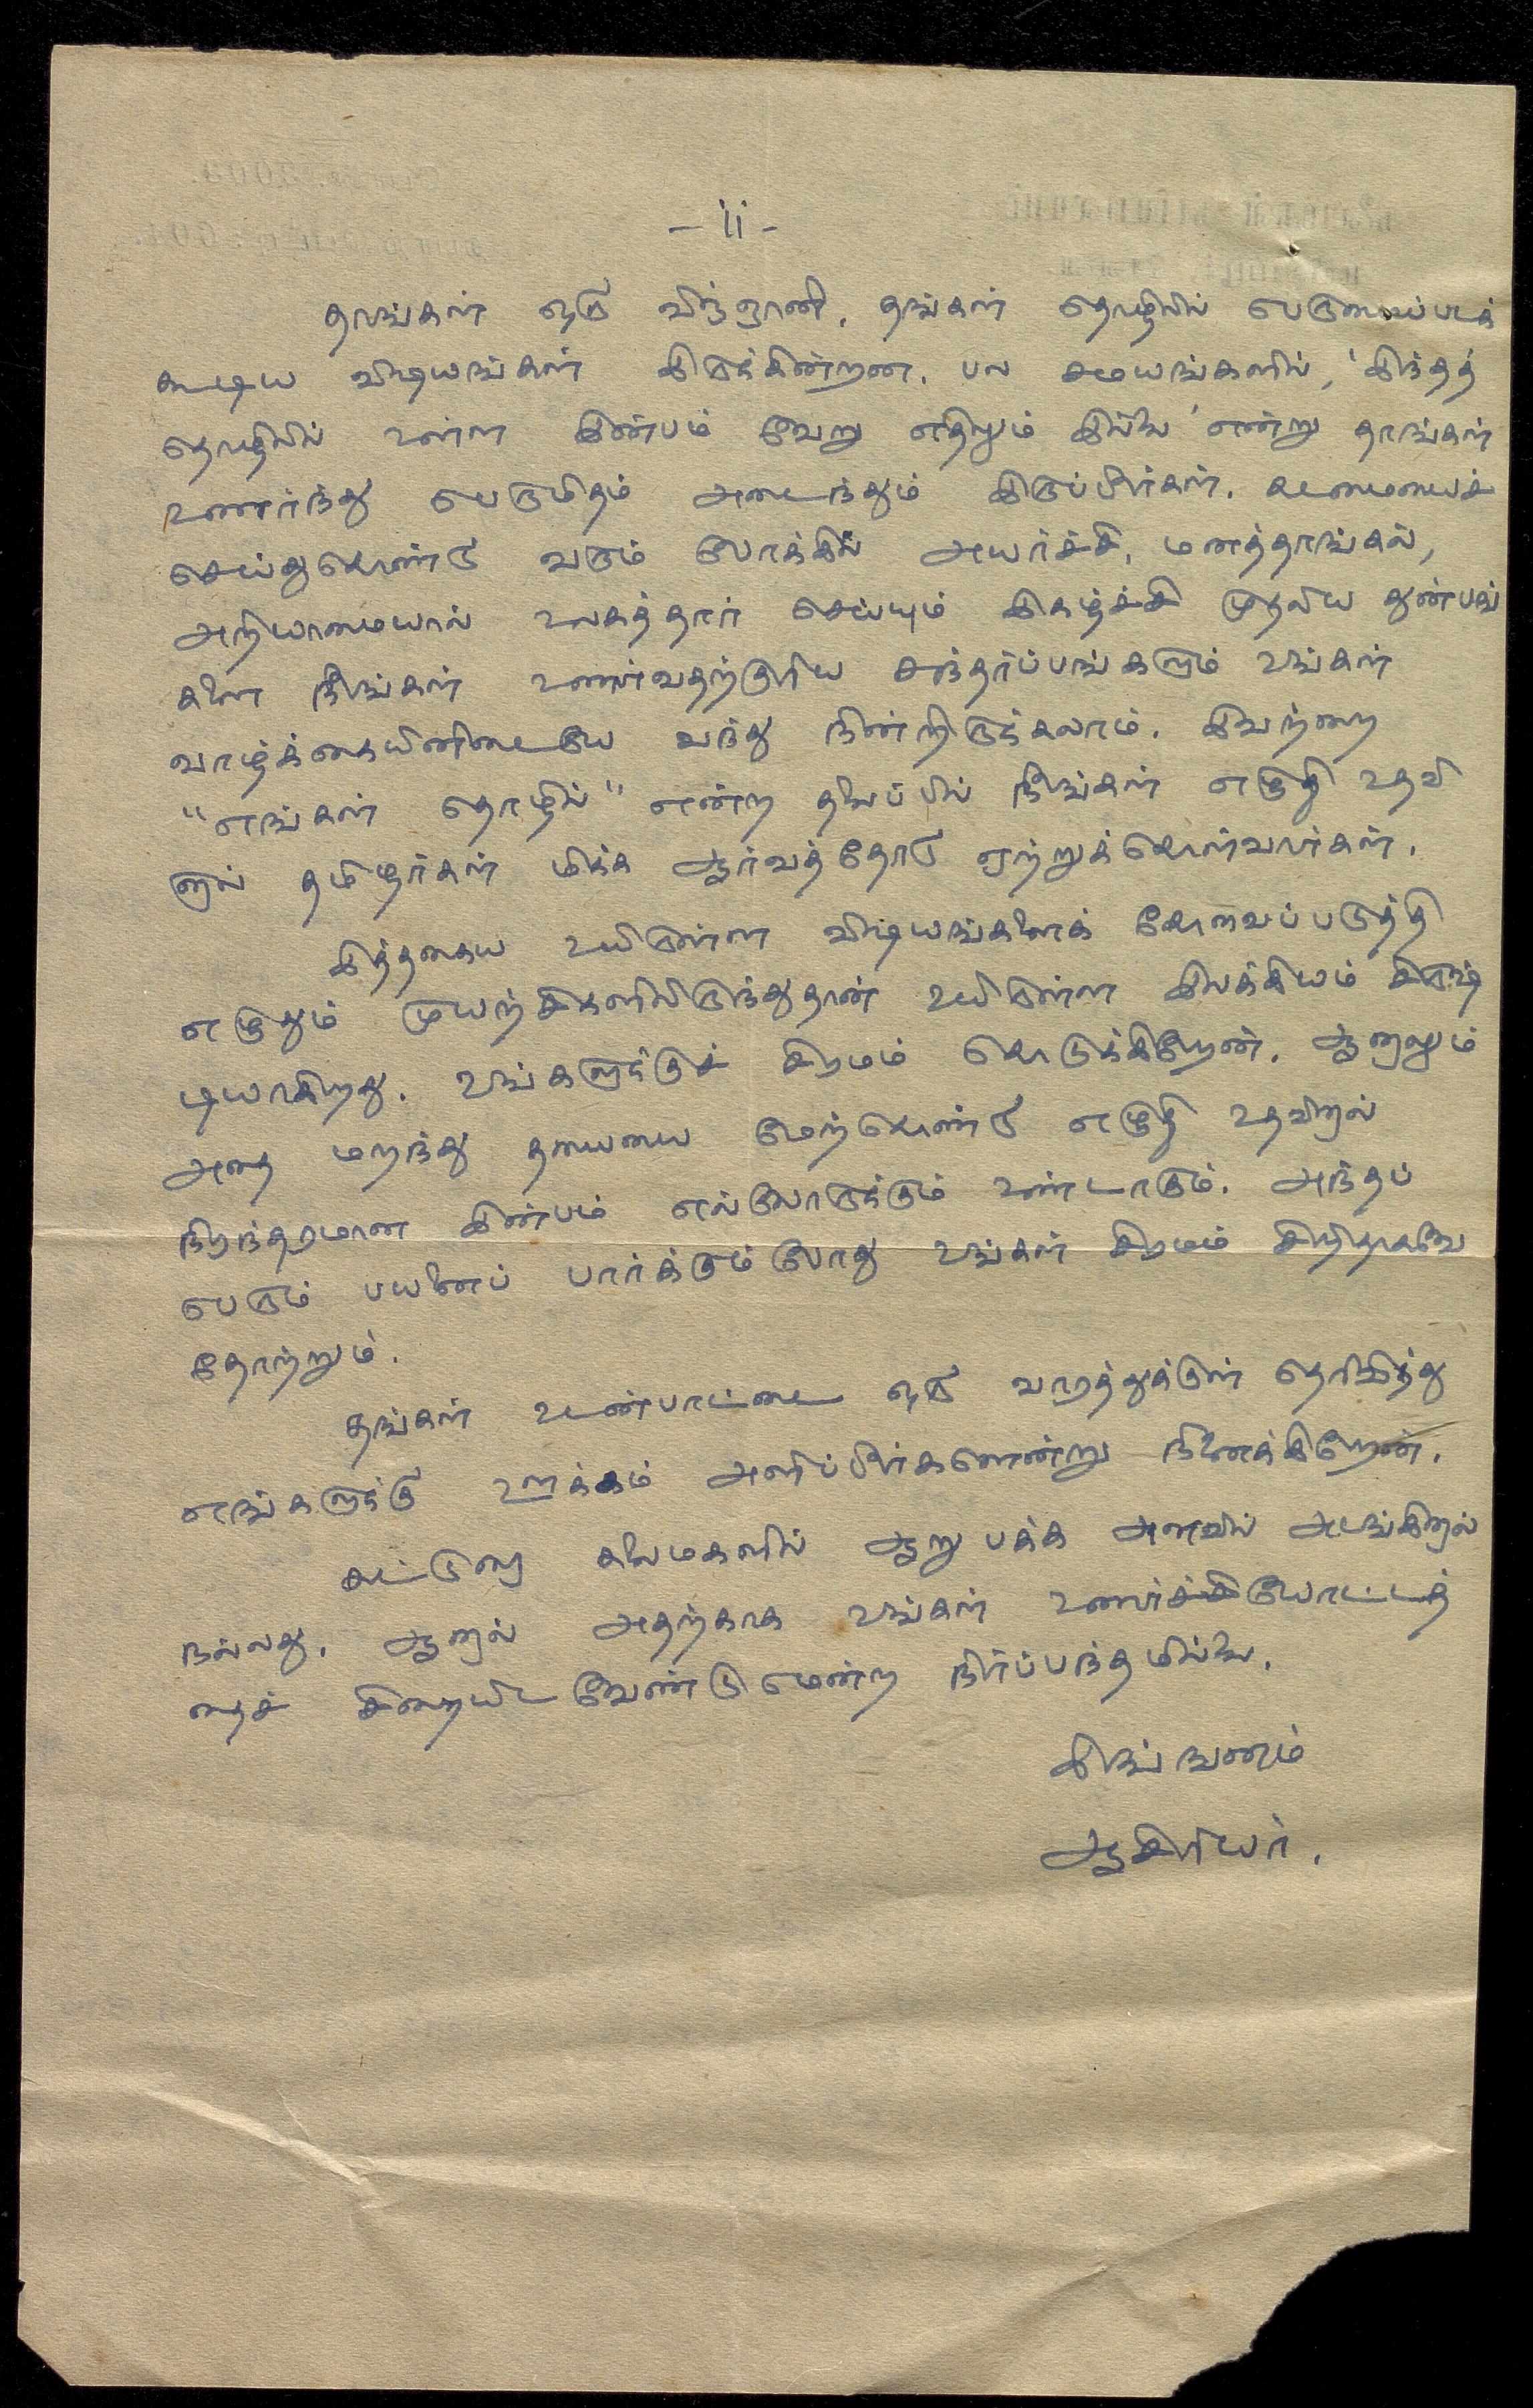 - ii -
தாங்கள் ஒரு விஞ்ஞானி. தங்கள் தொழிலில் பெருமைப்படக்
கூடிய விஷயங்கள் இருக்கின்றன. பல சமயங்களில், 'இந்தத்
தொழிலில் உள்ள இன்பம் வேறு எதிலும் இல்லை' என்று தாங்கள்
உணர்ந்து பெருமிதம் அடைந்தும் இருப்பீர்கள். கடமையைச்
செய்துகொண்டு வரும் போக்கில் அயர்ச்சி, மனத்தாங்கல்,
அறியாமையால் உலகத்தார் செய்யும் இகழ்ச்சி முதலிய துன்பங்
களை நீங்கள் உணர்வதற்குரிய சந்தர்ப்பங்களும் உங்கள்
வாழ்க்கையினிடையே வந்து நின்றிருக்கலாம். இவற்றை
"எங்கள் தொழில்" என்ற தலைப்பில் நீங்கள் எழுதி உதவி
னால் தமிழர்கள் மிக்க ஆர்வத்தோடு ஏற்றுக்கொள்வார்கள்.
இத்தகைய உயிருள்ள விஷயங்களைக் கோவைப்படுத்தி
எழுதும் முயற்சிகளிலிருந்துதான் உயிருள்ள இலக்கியம் சிருஷ்
டியாகிறது. உங்களுக்குச் சிரமம் கொடுக்கிறேன். ஆனாலும்
அதை மறந்து தயையை மேற்கொண்டு எழுதி உதவினால்
நிரந்தரமான இன்பம் எல்லோருக்கும் உண்டாகும். அந்தப்
பெரும் பயனைப் பார்க்கும்போது உங்கள் சிரமம் சிறிதாகவே
தோற்றும்.
தங்கள் உடன்பாட்டை ஒரு வாரத்துக்குள் தெரிவித்து
எங்களுக்கு ஊக்கம் அளிப்பீர்களென்று நினைக்கிறேன்.
கட்டுரை கலைமகளில் ஆறு பக்க அளவில் அடங்கினால்
நல்லது. ஆனால் அதற்காக உங்கள் உணர்ச்சியோட்டத்
தைச் சிறையிட வேண்டுமென்ற நிர்ப்பந்தமில்லை.
இங்ஙனம்
ஆசிரியர்.